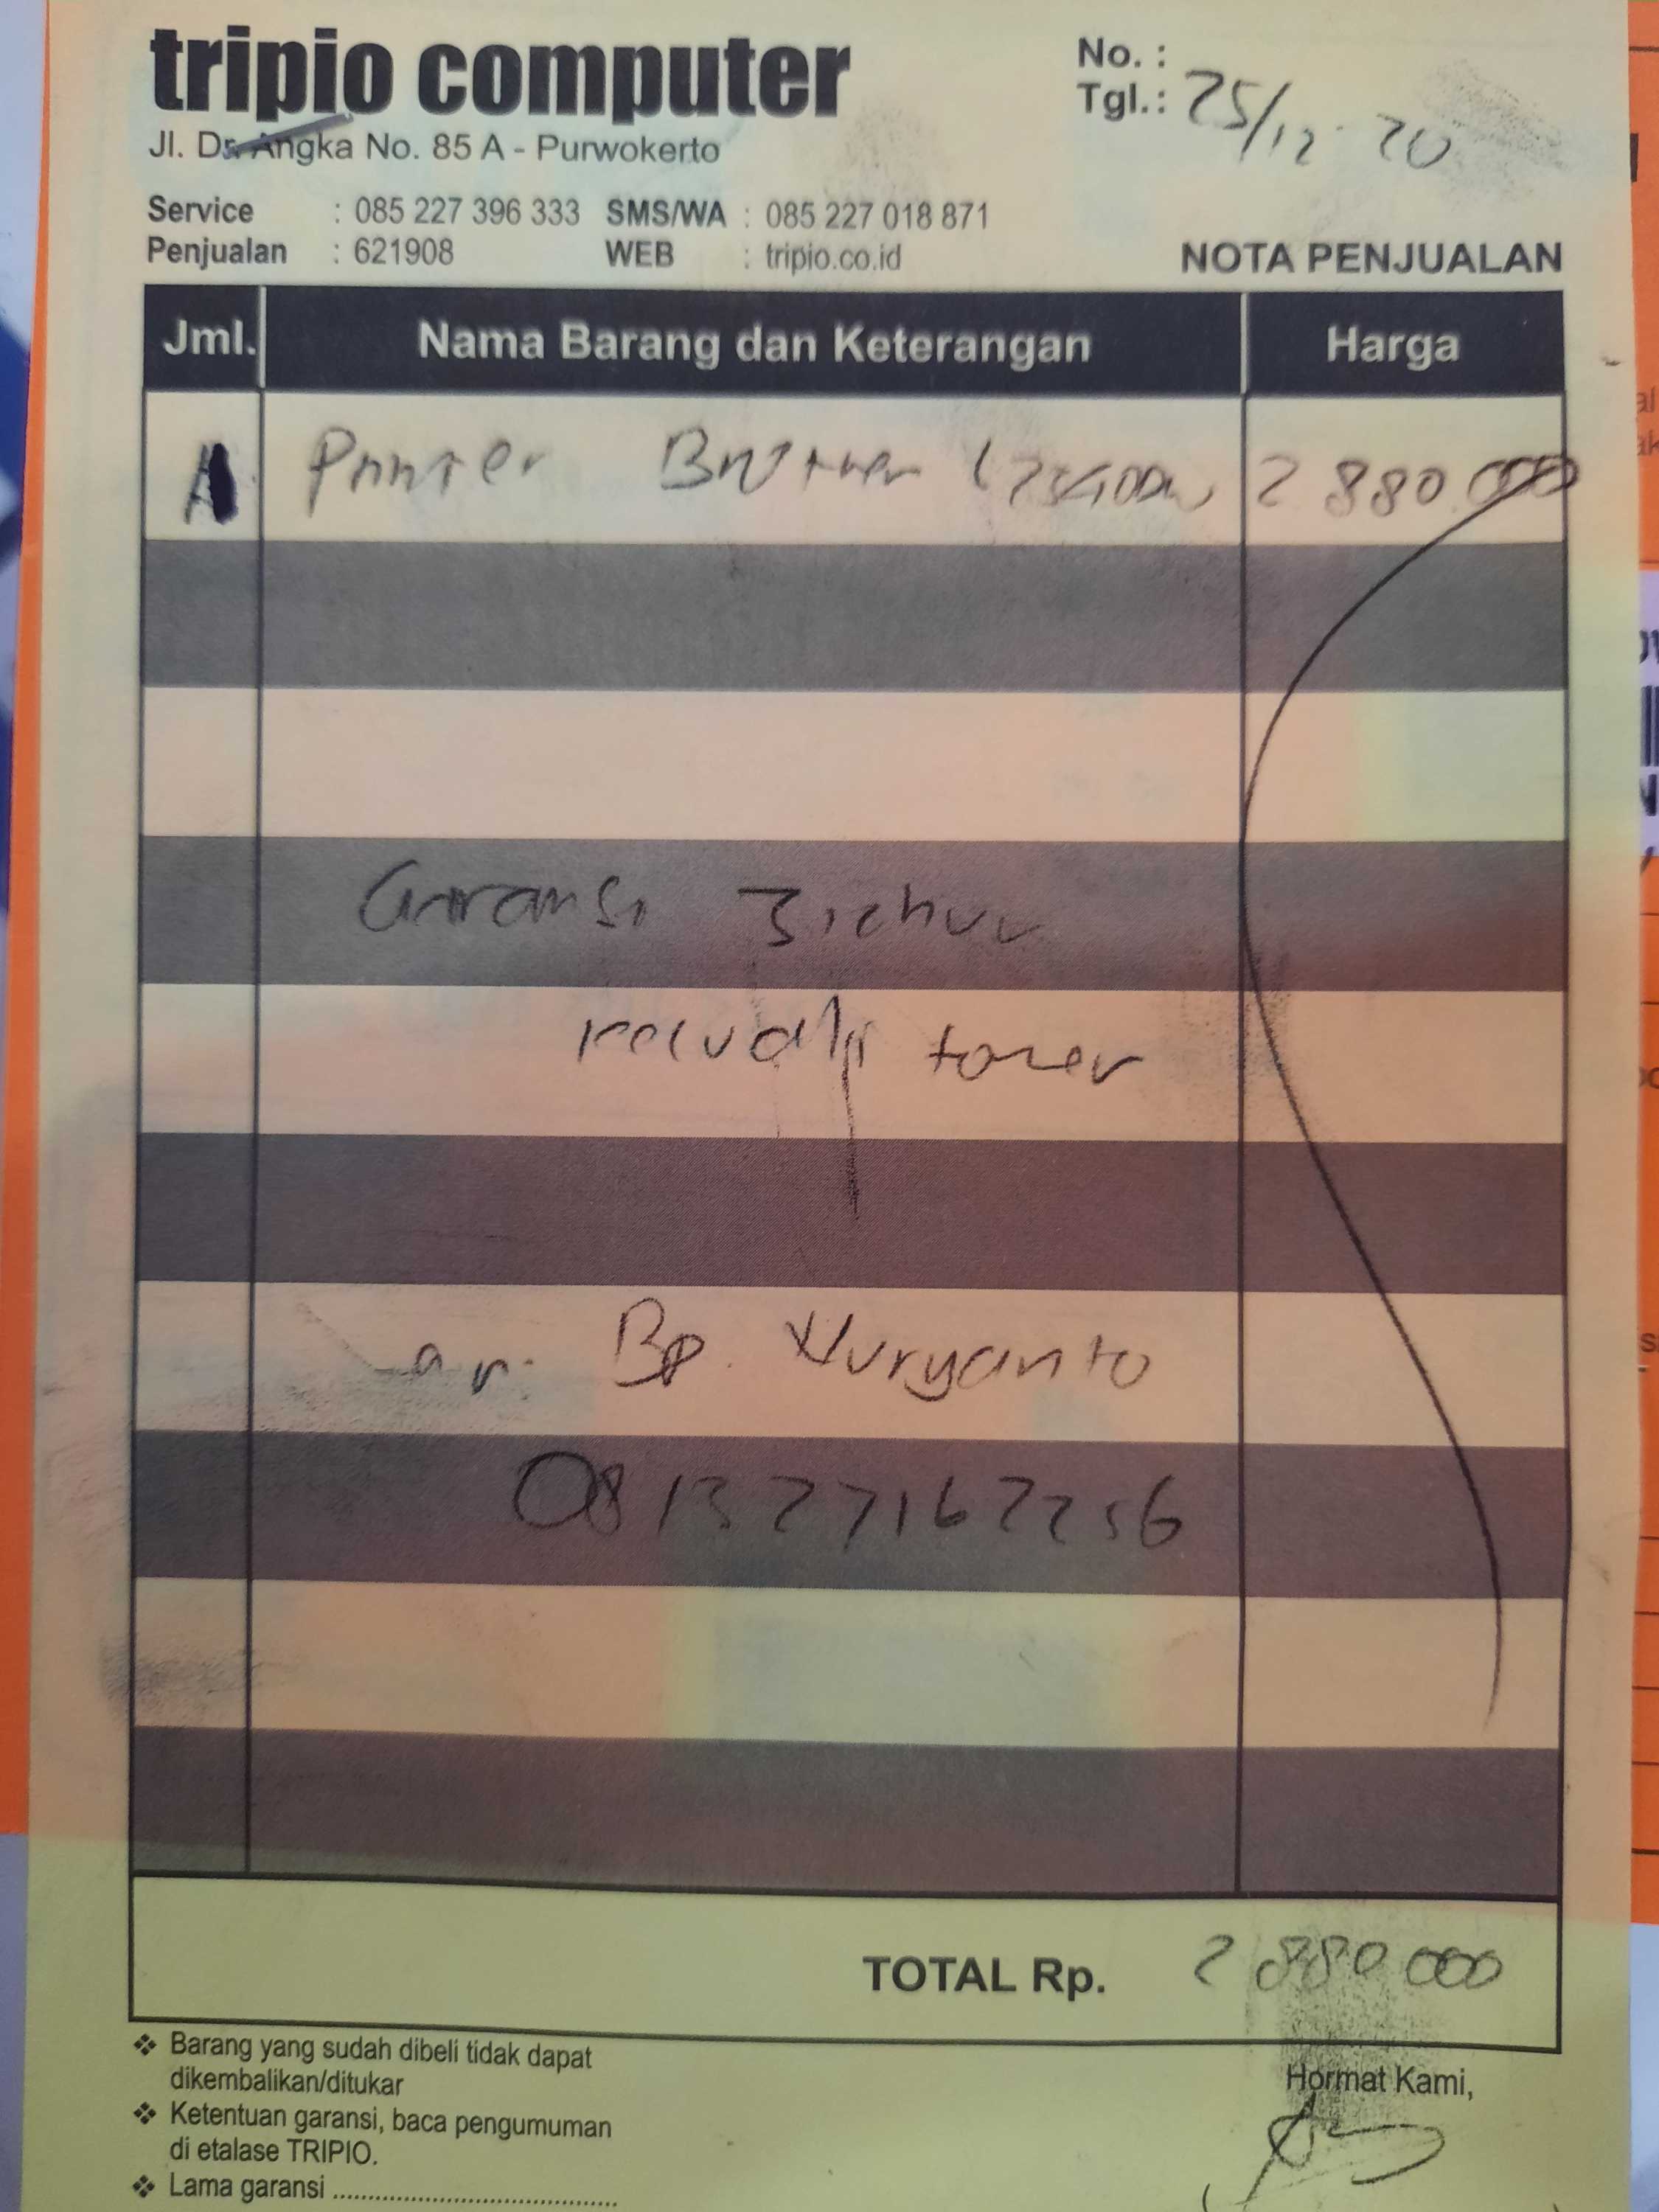 tripio computer
Jl. Dr. Angka No. 85 A - Purwokerto
No. :
Tgl. : 25/12 20
Service : 085 227 396 333 SMS/WA : 085 227 018 871
Penjualan : 621908 WEB : tripio.co.id
NOTA PENJUALAN
Jml. Nama Barang dan Keterangan Harga
1 Printer Brother 2 880.000
Garansi 3 tahun
kecuali toner
an. Bp. Nuryanto
081327162256
TOTAL Rp. 2 880 000
❖ Barang yang sudah dibeli tidak dapat
dikembalikan/ditukar
❖ Ketentuan garansi, baca pengumuman
di etalase TRIPIO.
❖ Lama garansi ..........................................
Hormat Kami,